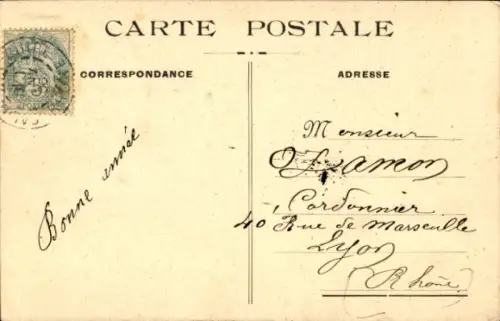 CARTE POSTALE
CORRESPONDANCE
ADRESSE
Bonne année
Monsieur
Cordonnier
40 Rue de Marseille
Lyon
(Rhône)